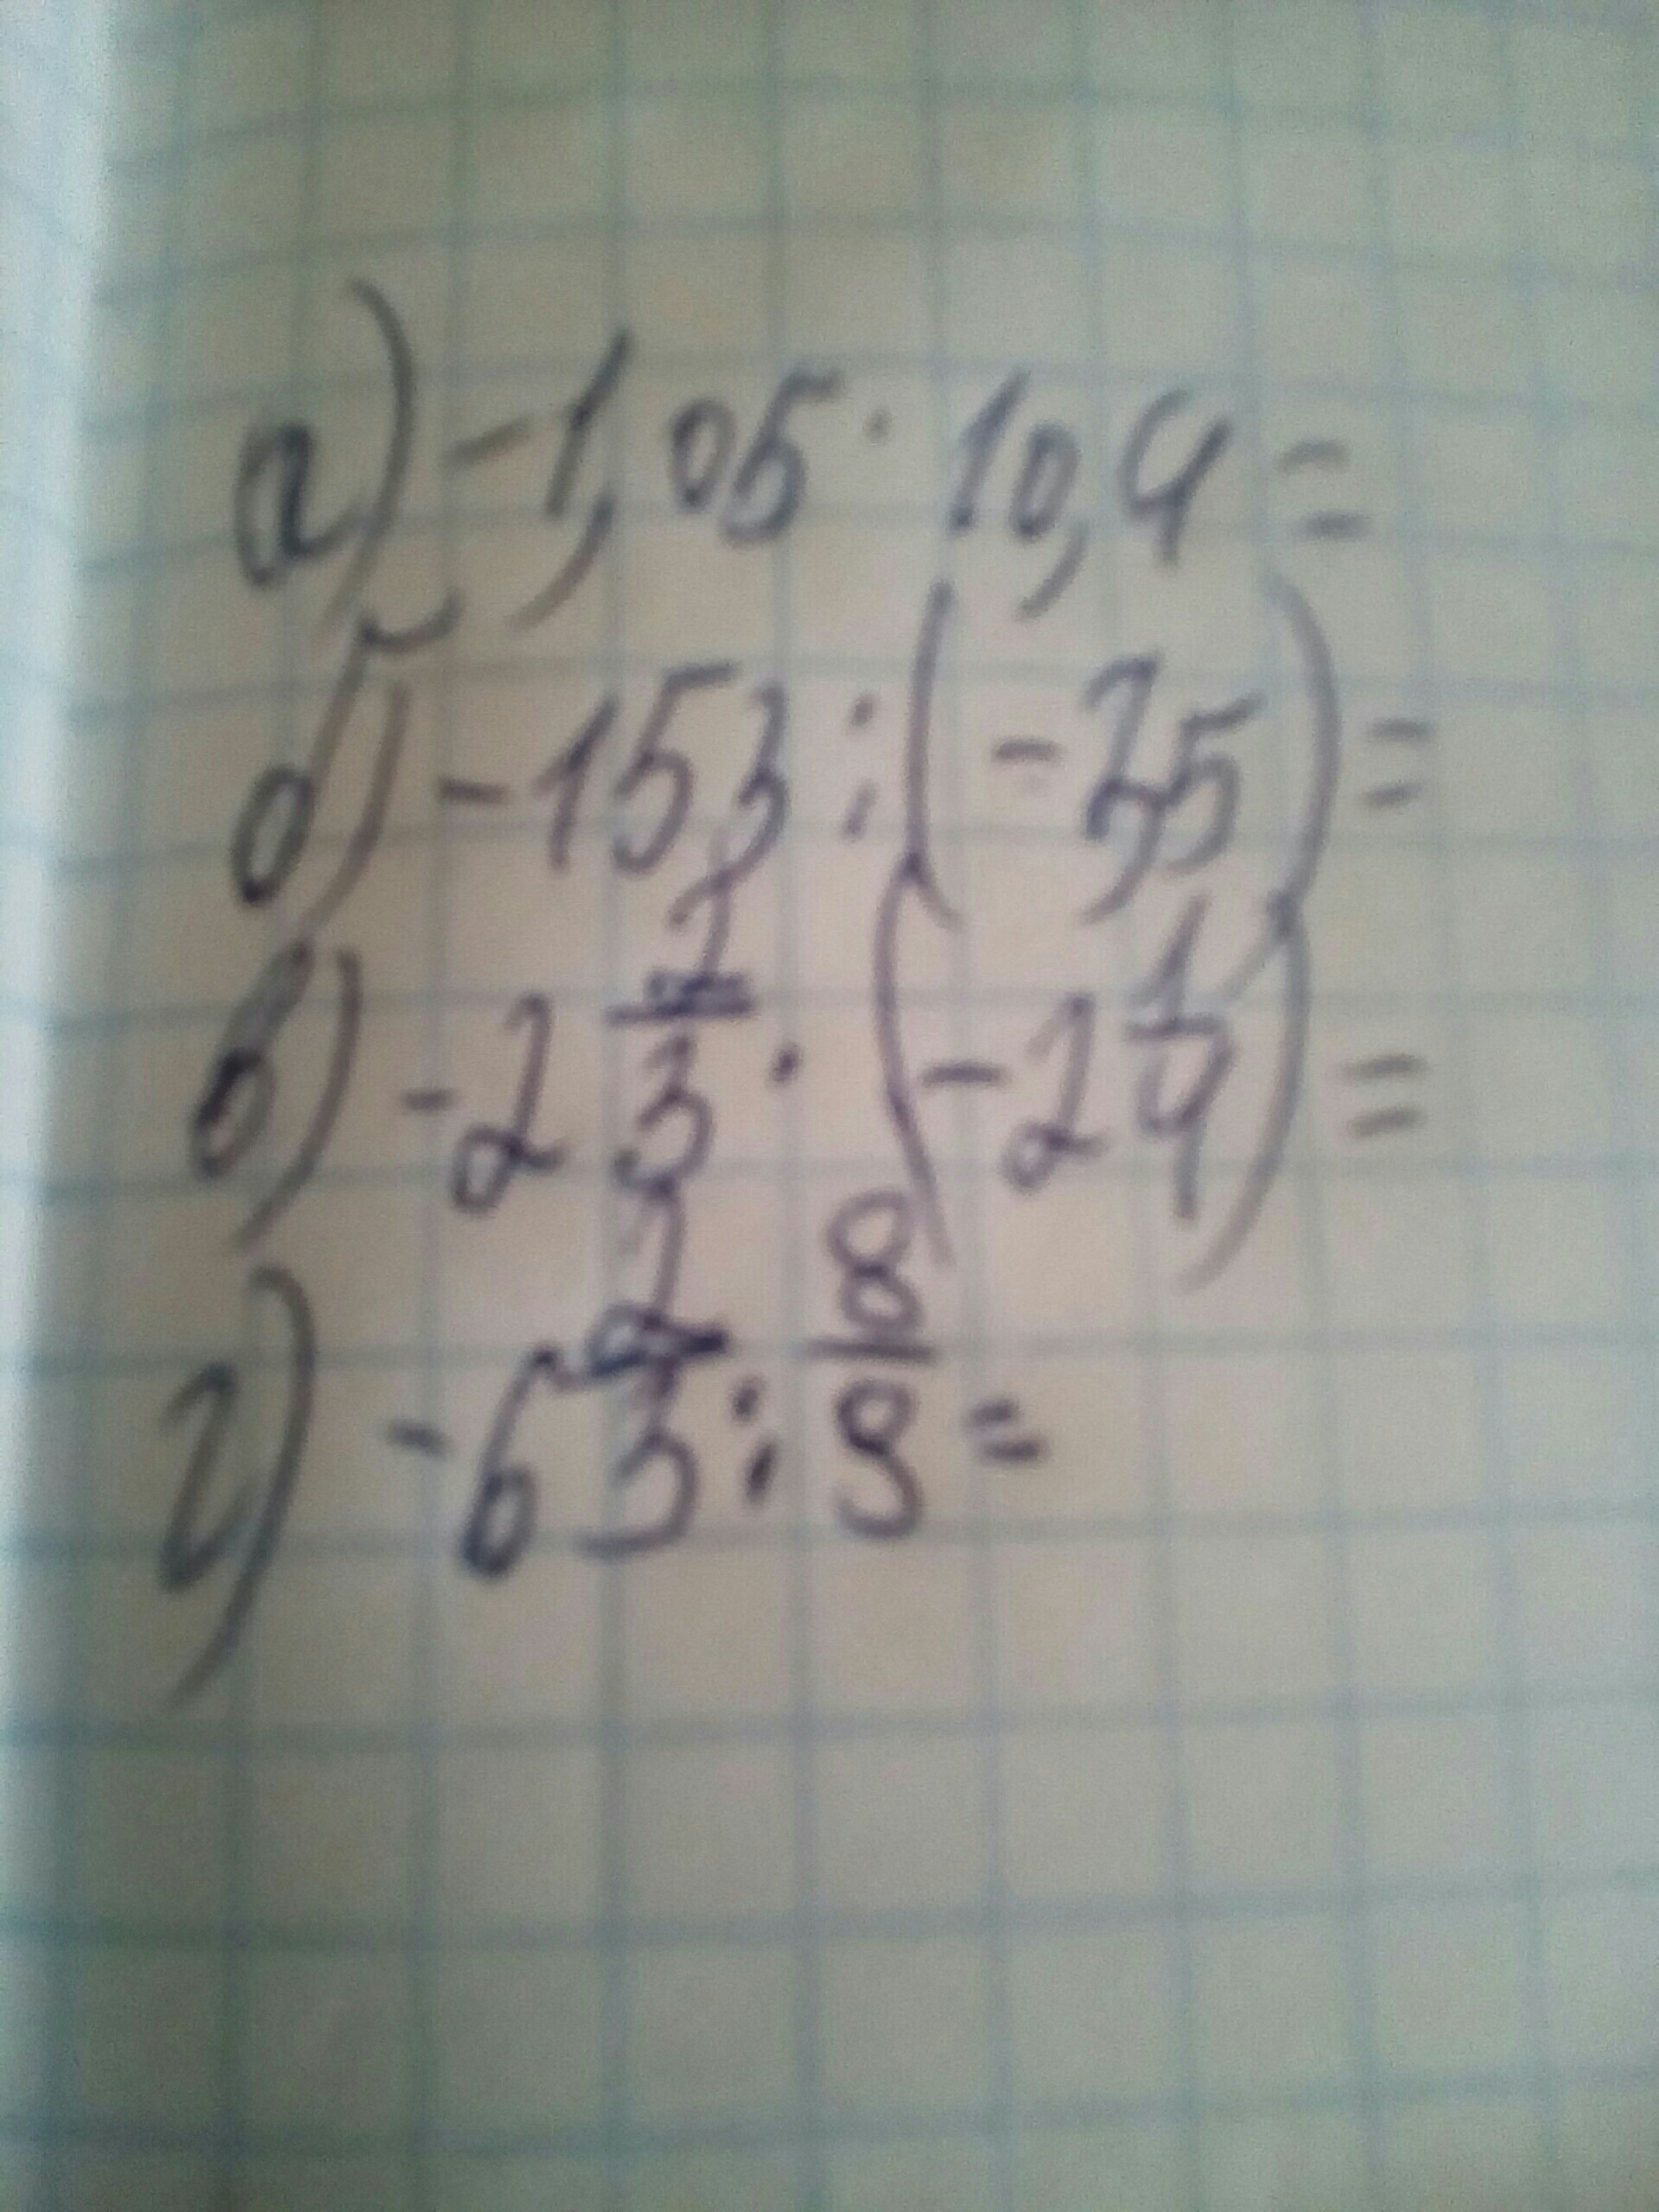 а) -1,05 · 10,4 =
б) -153 : (-3,5) =
в) -2 2/3 · (-2 1/4) =
г) -6 2/3 : 8/9 =